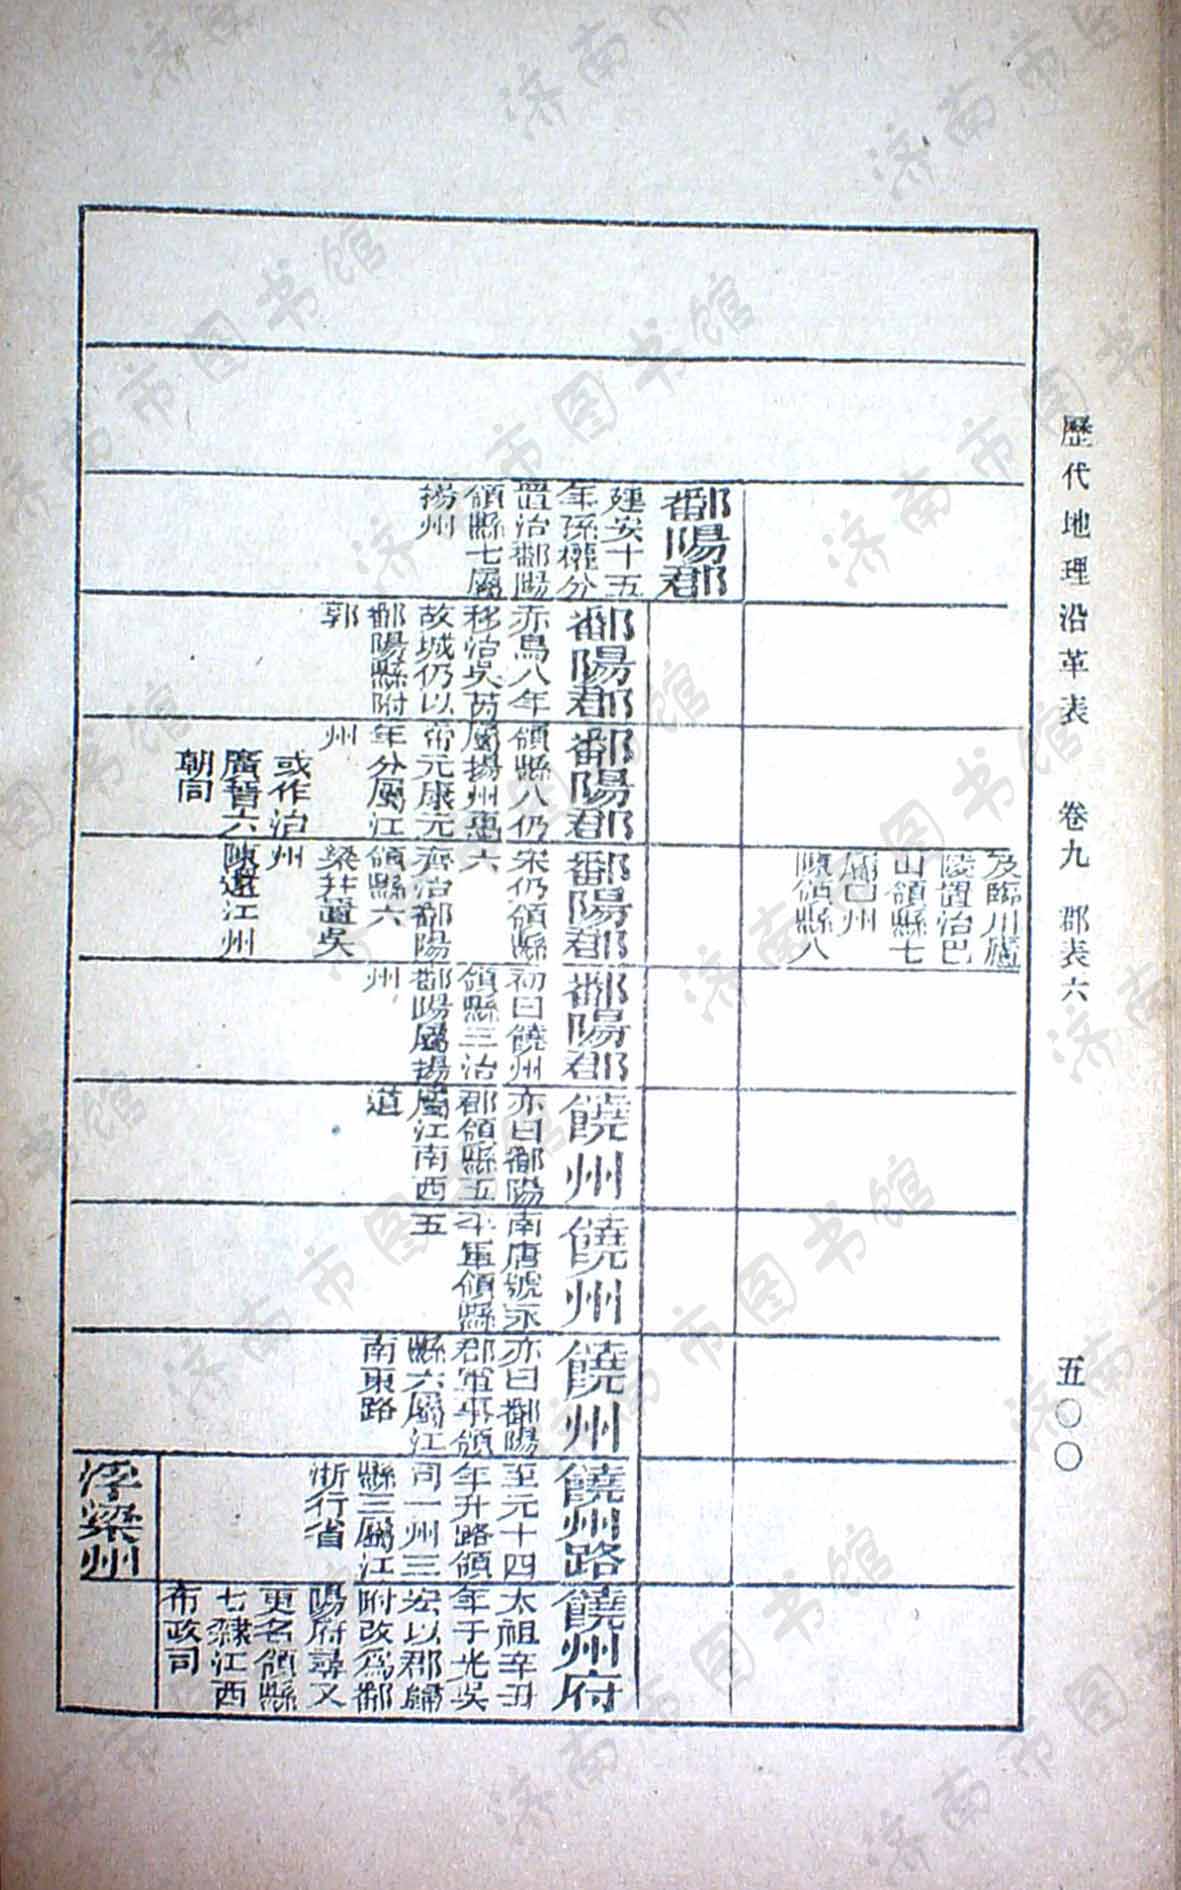 歷代地理沿革表 卷九 郡表六 五〇〇
及臨川廬
陵置治巴
山領縣七
屬巴州
陳領縣八
鄱陽郡
建安十五
年孫權分
置治鄱陽
領縣七屬
揚州
鄱陽郡
赤烏八年
移治吳芮
故城仍以
鄱陽縣附
郭
鄱陽郡
領縣八仍
屬揚州惠
帝元康元
年分屬江
州
或作治
廣晉六
朝同
鄱陽郡
宋仍領縣
六
齊治鄱陽
領縣六
梁兼置吳
州
陳還江州
鄱陽郡
初曰饒州
領縣三治
鄱陽屬揚
州
饒州
亦曰鄱陽
郡領縣五
屬江南西
道
饒州
南唐號永
平軍領縣
五
饒州
亦曰鄱陽
郡軍事領
縣六屬江
南東路
饒州路
至元十四
年升路領
司一州三
縣三屬江
浙行省
饒州府
太祖辛丑
年于光吳
宏以郡歸
附改爲鄱
陽府尋又
更名領縣
七隸江西
布政司
浮梁州
济南市图书馆